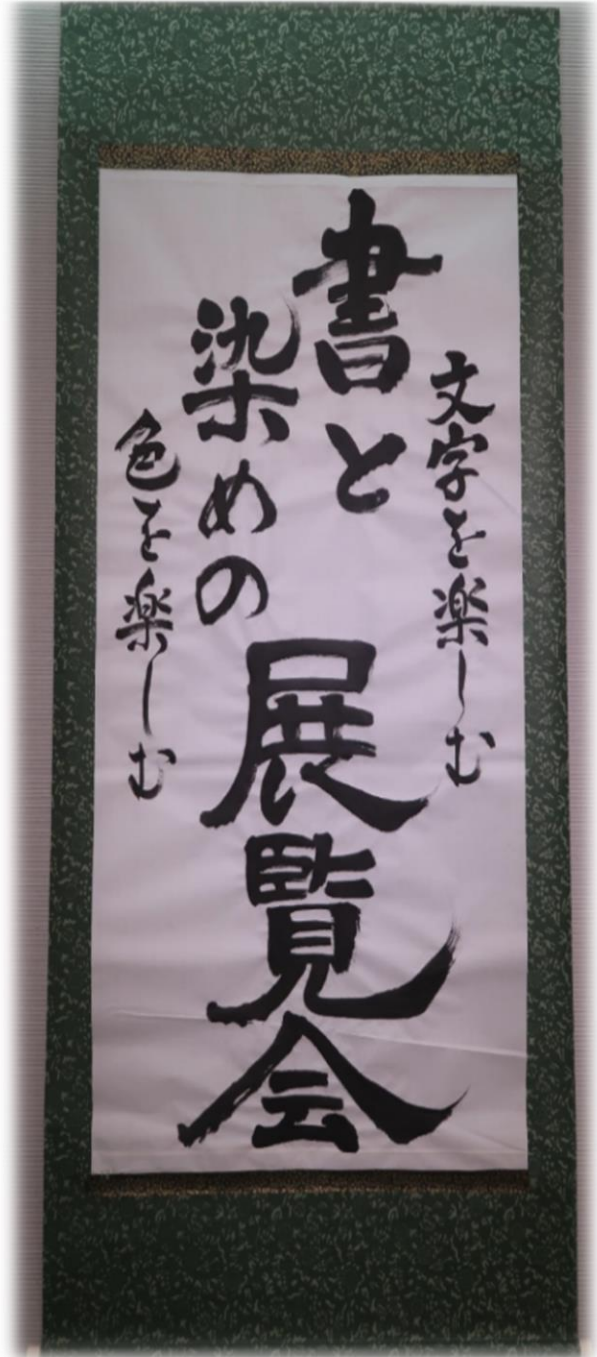 文字を楽しむ
書と
染めの
展覧会
色を楽しむ